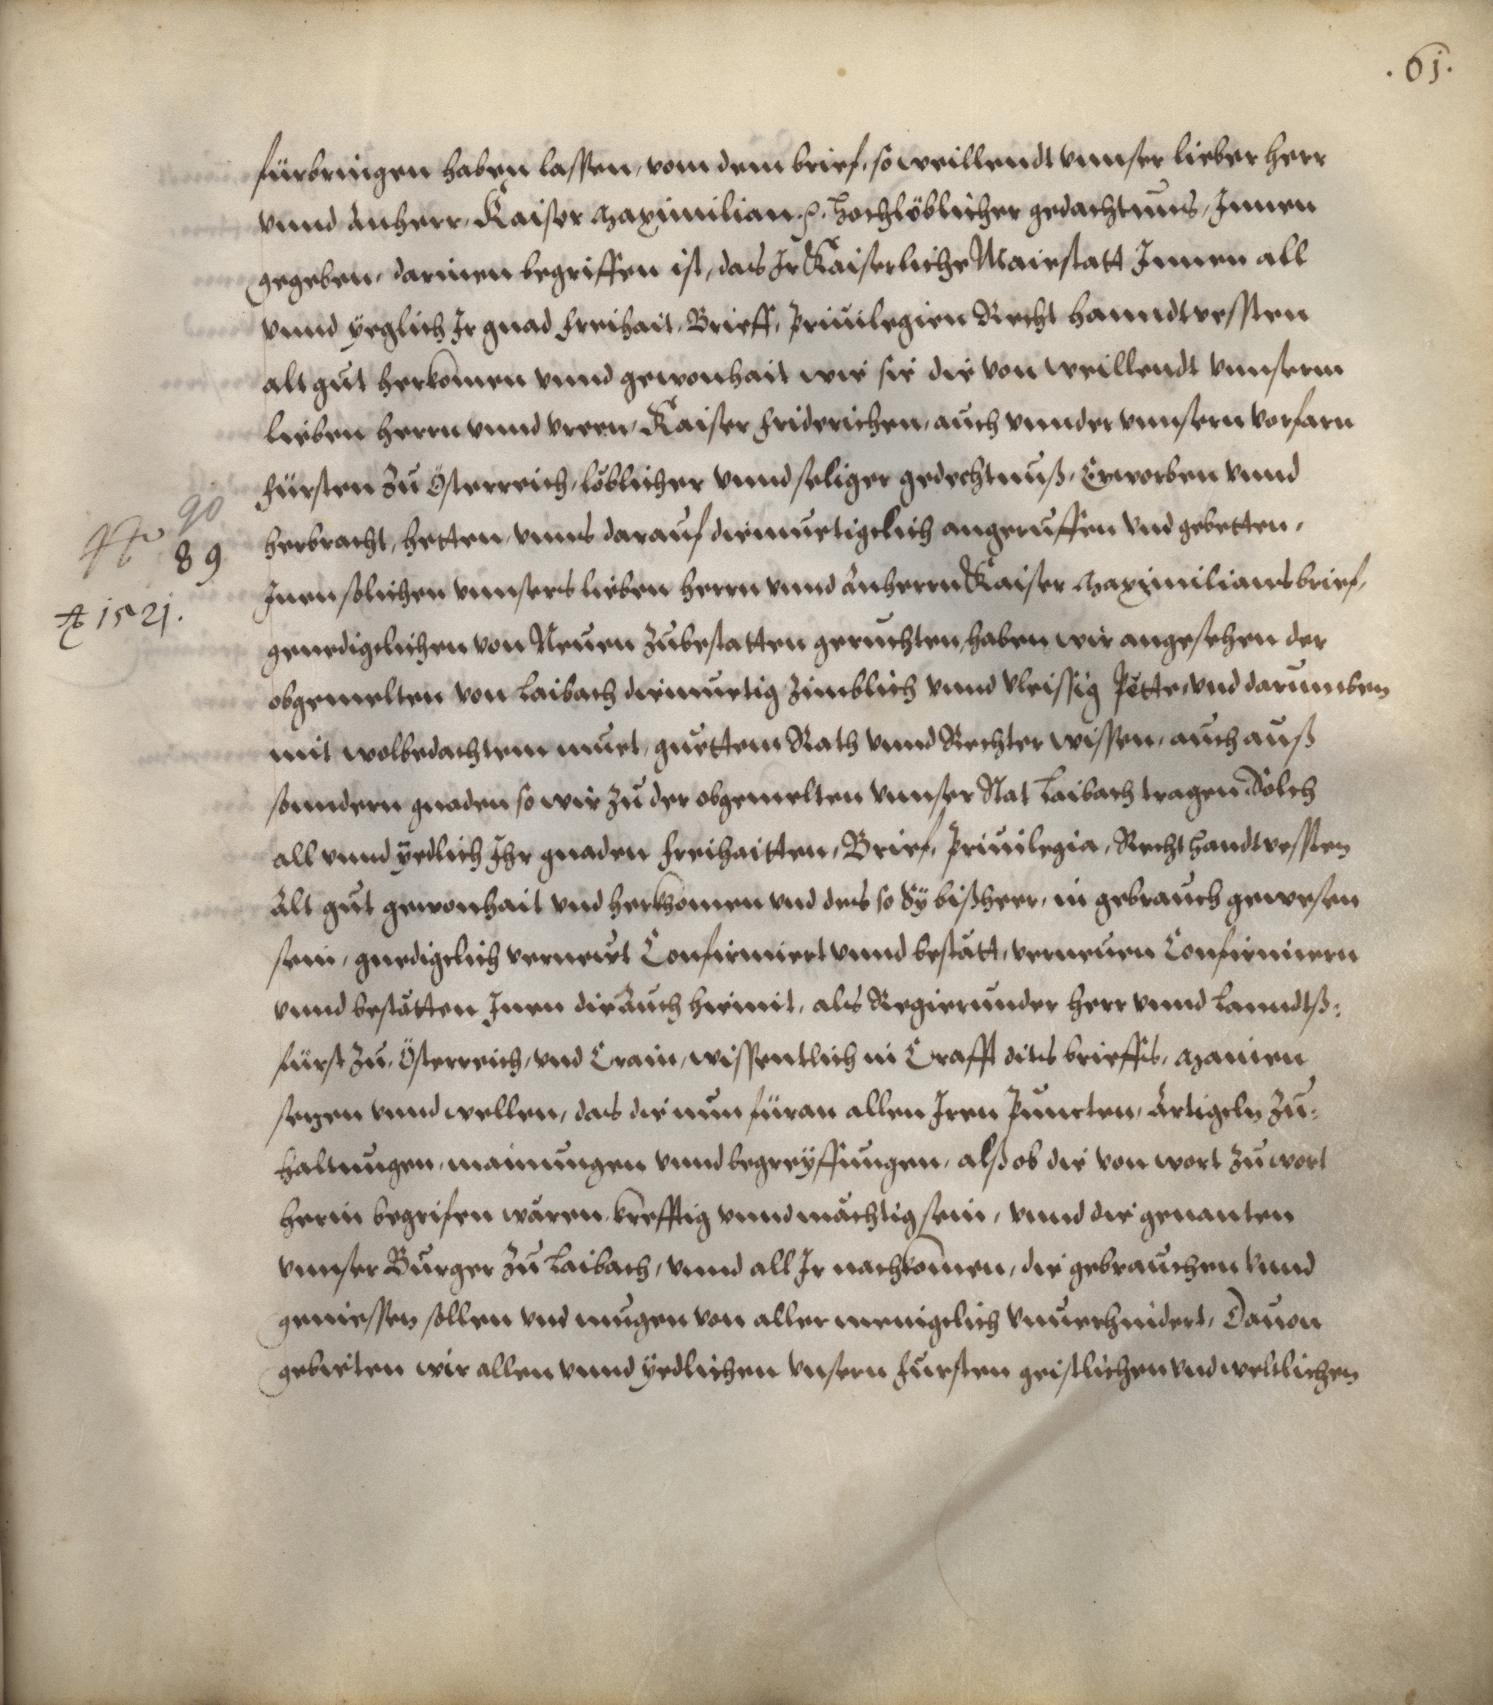 .61.
fürbringen haben lassen, vom dem brief, so weillendt vnnser lieber herr
vnnd Anherr, Kaiser Maximilian .p. hochlöblicher gedachtnus, Innen
gegeben, darinen begriffen ist, das Ir Kaiserliche Maiestatt Innen all
vnnd yeglich Ir gnad freihait, Brieff, Priuilegien Recht hanndtvessten
alt gut herkomen vnnd gewonhait wie sie die von weillendt vnnserm
lieben herrn vnnd vreen, Kaiser Friderichen, auch vnnder vnnsern vorfarn
fürsten zu Österreich, löblicher vnnd seliger gedechtnuß, Erworben vnnd
90
herbracht, hetten, vnns darauf diemuetigclich angeruffen vnd gebetten,
89
Inen solichen vnnsers lieben herrn vnnd Anherrn Kaiser Maximilians brief,
A 1521.
genedigclichen von Neuen zubestatten geruchten, haben wir angesehen der
obgemelten von Laibach diemuetig zimblich vnnd vleissig Pette, vnd darumben
mit wolbedachtem muet, guettem Rath vnnd Rechter wissen, auch auß
sonndern gnaden so wir zu der obgemelten vnnser Stat Laibach tragen Solch
all vnnd yedlich Ihr gnaden freihaitten, Brief, Priuilegia, Recht handtvessten
Alt gut gewonhait vnd herkhomen vnd des so Sy bißheer, in gebrauch gewesen
sein, gnedigclich verneurt Confirmiert vnnd bestätt, verneuen Confirmiern
vnnd bestätten Inen die Auch hiemit, als Regierunder herr vnnd Lanndtß:
fürst zu Österreich, vnd Crain, wissentlich in Crafft dits brieffs, Mainen
sezen vnnd wellen, das die nun füran allen Iren Puncten, Artigcln zu:
haltungen, mainungen vnnd begreyffungen, alß ob die von wort zu wort
herin begrifen wären krefftig vnnd mächtig sein, vnnd die genanten
vnnser Burger zu Laibach, vnnd all Ir nachkomen, die gebrauchen vnnd
geniessen sollen vnd mugen von aller menigclich vnuerhindert, Dauon
gebieten wir allen vnnd yedlichen vnsern fursten geistlichen vnd weltlichen